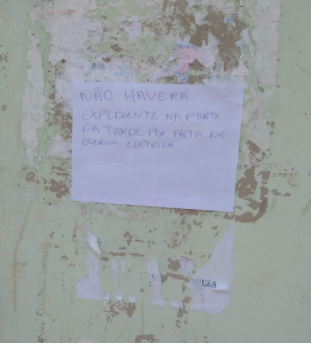 NÃO HAVERA
EXPEDIENTE NA PARTE
DA TARDE POR FALTA DE
ENERGIA ELETRICA